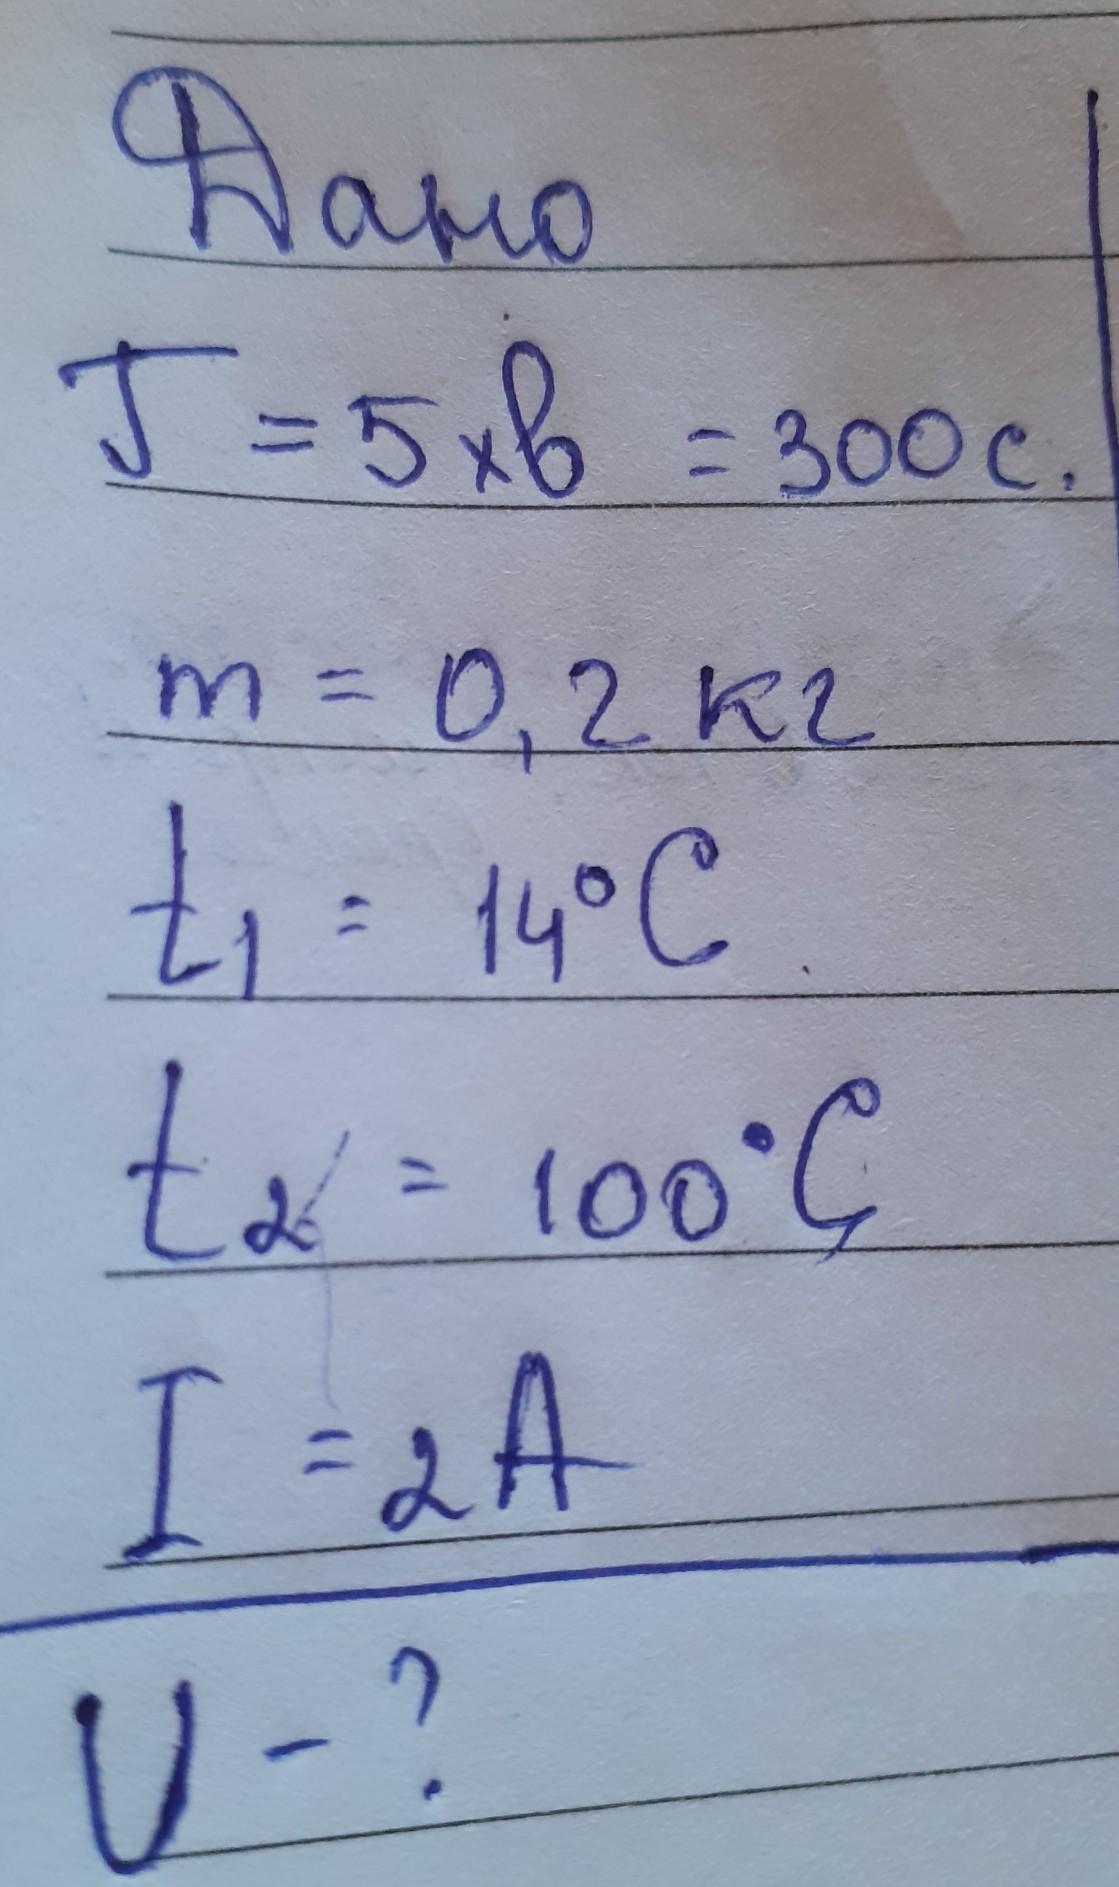 Дано
T = 5 хв = 300 с.
m = 0,2 кг
t₁ = 14°C
t₂ = 100°C
I = 2 A
U - ?